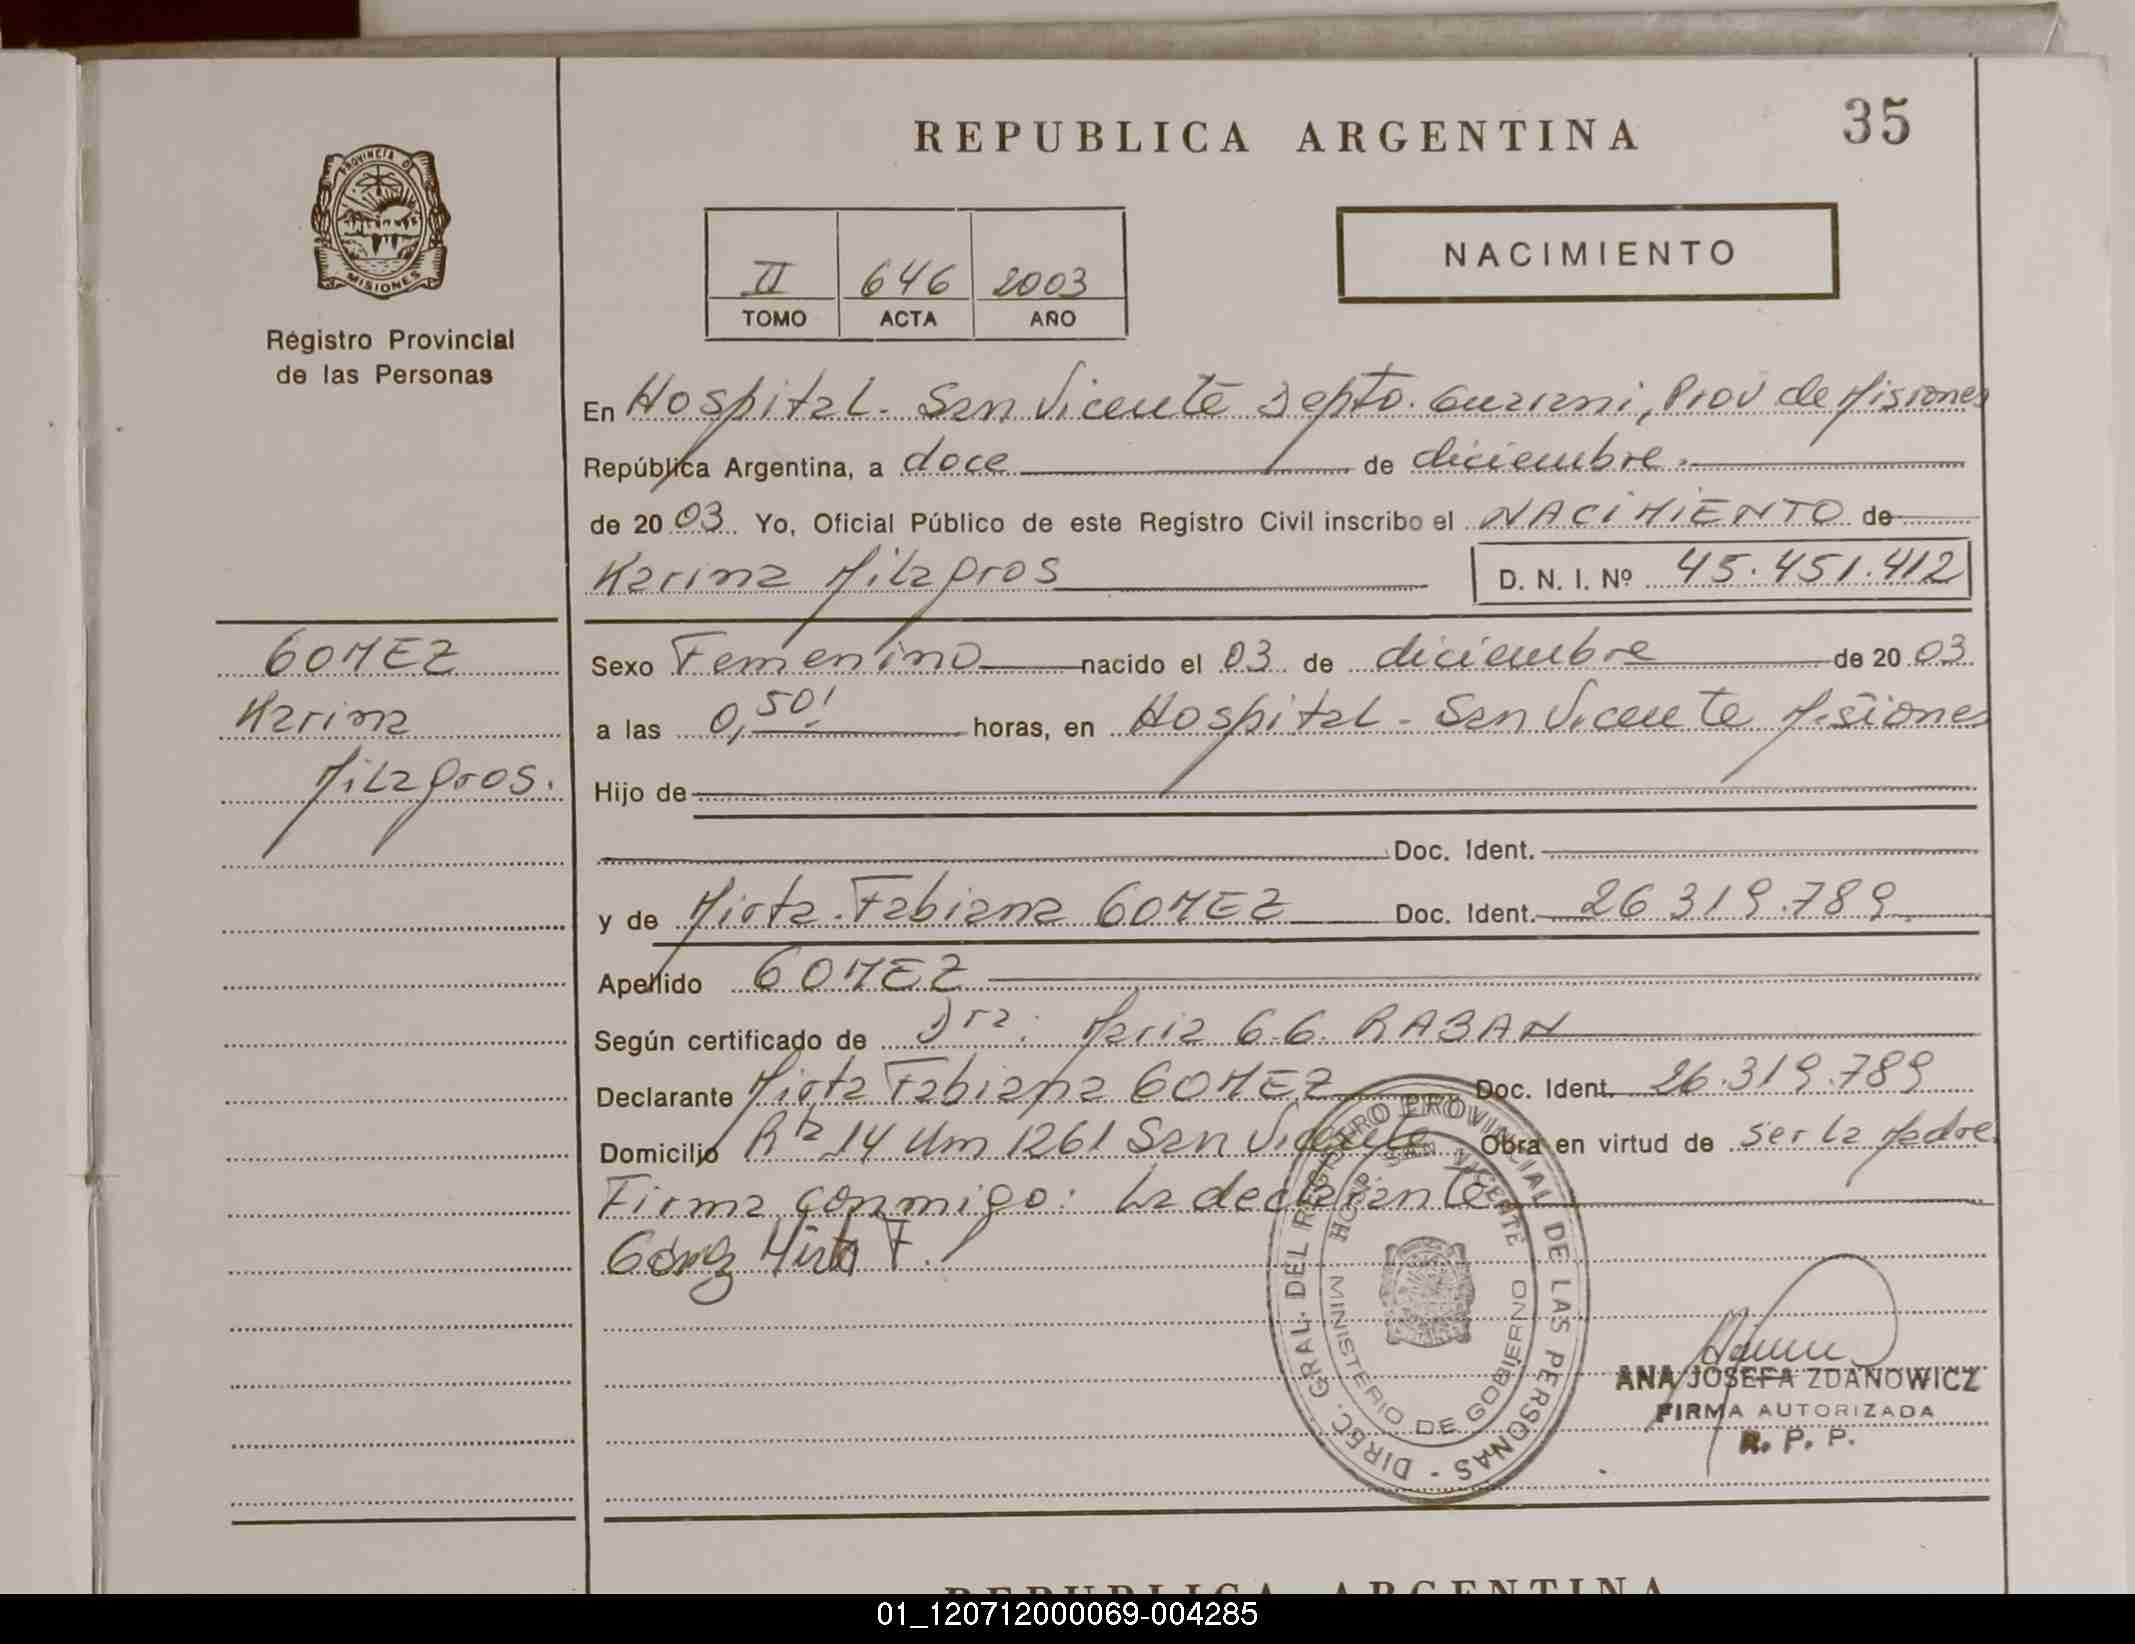 REPUBLICA ARGENTINA
35
PROVINCIA DE MISIONES
Registro Provincial
de las Personas
II 646 2003
TOMO ACTA AÑO
NACIMIENTO
En Hospital - San Vicente Depto. Guarani, Prov de Misiones
República Argentina, a doce de diciembre.
de 2003 Yo, Oficial Público de este Registro Civil inscribo el NACIMIENTO de
Karina Milagros D. N. I. Nº 45.451.412
GOMEZ
Karina
Milagros.
Sexo Femenino nacido el 03 de diciembre de 2003
a las 0,50' horas, en Hospital - San Vicente Misiones
Hijo de
Doc. Ident.
y de Mirta Fabiana GOMEZ Doc. Ident. 26.319.789
Apellido GOMEZ
Según certificado de Dra: Maria G.G. RABAN
Declarante Mirta Fabiana GOMEZ Doc. Ident. 26.319.789
Domicilio Rta 14 Km 1261 San Vicente Obra en virtud de ser la Madre
Firma conmigo: La declarante
Gómez Mirta F.
DIREC. GRAL. DEL REGISTRO PROVINCIAL DE LAS PERSONAS -
HOSP. SAN VICENTE
MINISTERIO DE GOBIERNO
ANA JOSEFA ZDANOWICZ
FIRMA AUTORIZADA
R. P. P.
REPUBLICA ARGENTINA
01_120712000069-004285